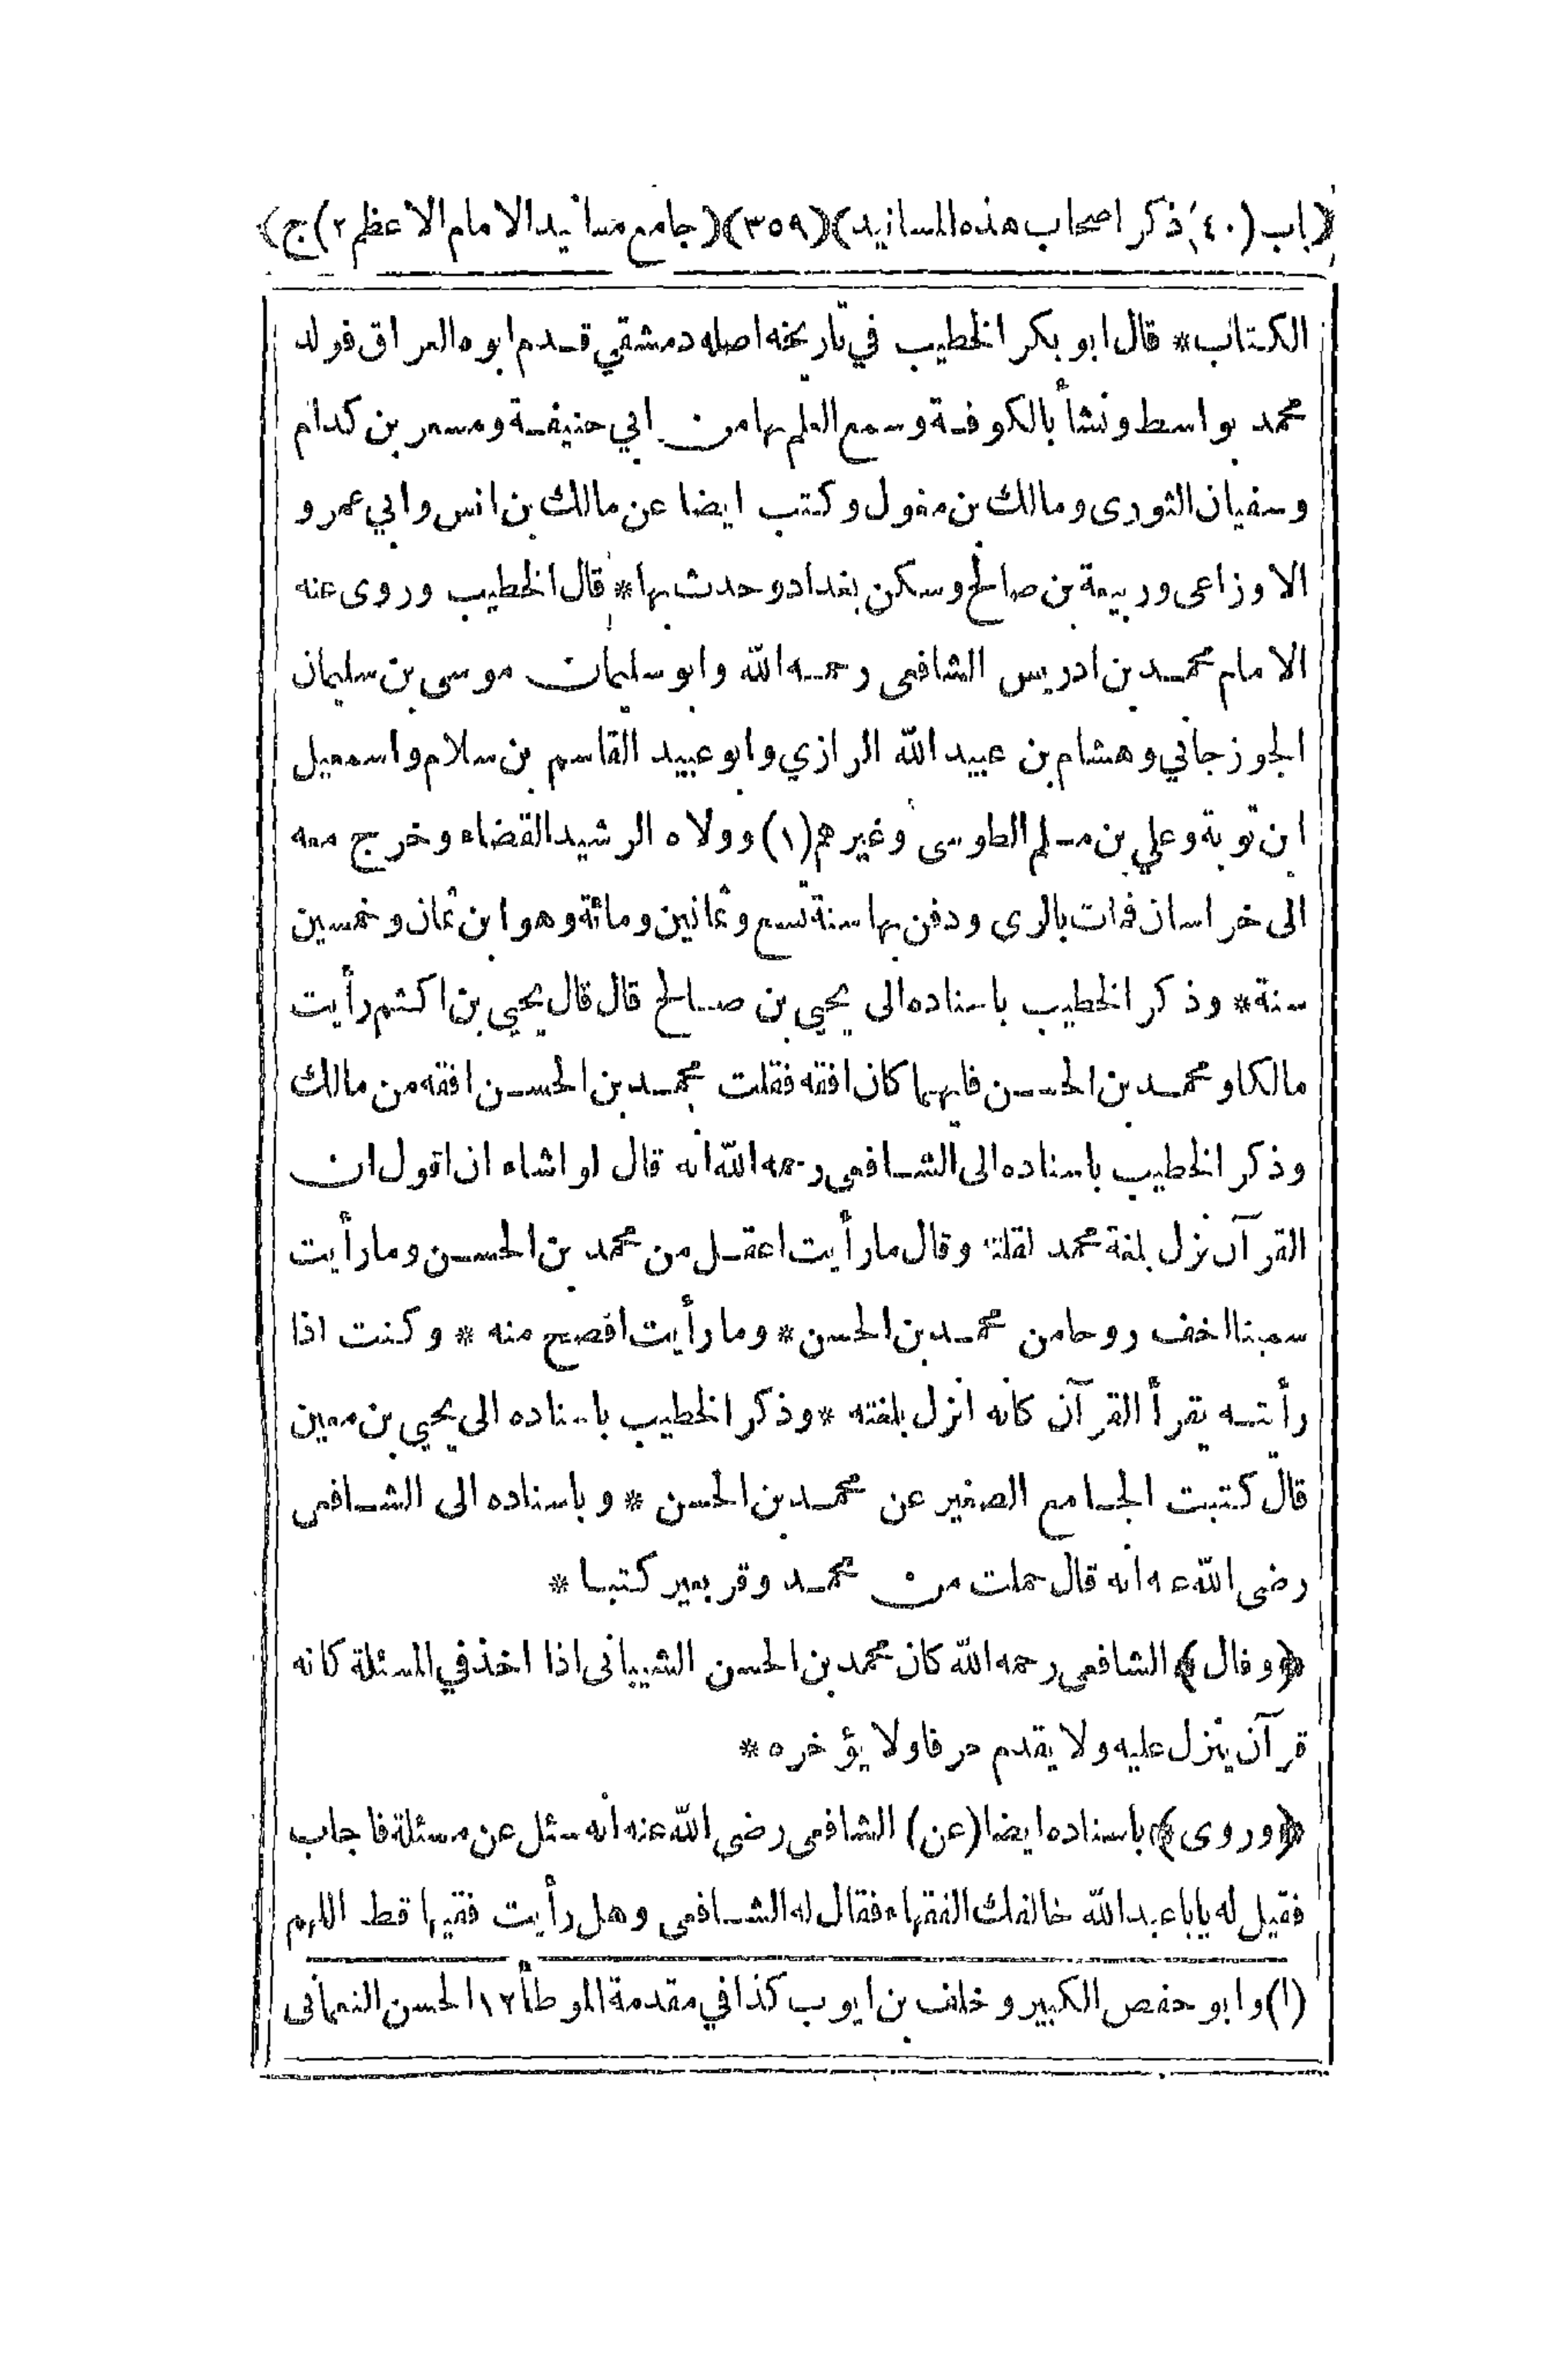 ﴿باب (٤٠) ذكر اصحاب هذه المسانيد) (٣٥٩) (جامع مسانيد الامام الاعظم ٢) ج﴾
الكتاب * قال ابو بكر الخطيب في تاريخه اصله دمشقي قدم ابوه العراق فولد
محمد بواسط ونشأ بالكوفة وسمع العلم بها من ابي حنيفة ومسعر بن كدام
وسفيان الثورى ومالك بن مغول وكتب ايضا عن مالك بن انس وابي عمرو
الاوزاعى وربيعة بن صالح وسكن بغداد وحدث بها * قال الخطيب وروى عنه
الامام محمد بن ادريس الشافعى رحمه الله وابو سليمان موسى بن سليمان
الجوزجاني وهشام بن عبيد الله الرازي وابو عبيد القاسم بن سلام واسمعيل
ابن توبة وعلي بن مسلم الطوسى وغيرهم (١) وولاه الرشيد القضاء وخرج معه
الى خراسان فمات بالرى ودفن بها سنة تسع وثمانين ومائة وهو ابن ثمان وخمسين
سنة * وذكر الخطيب باسناده الى يحيى بن صالح قال قال يحيى بن اكثم رأيت
مالكا ومحمد بن الحسن فايهما كان افقه فقلت محمد بن الحسن افقه من مالك
وذكر الخطيب باسناده الى الشافعى رحمه الله انه قال لو اشاء ان اقول ان
القرآن نزل بلغة محمد لقلته وقال ما رأيت اعقل من محمد بن الحسن وما رأيت
سمينا اخف روحا من محمد بن الحسن * وما رأيت افصح منه * وكنت اذا
رأيته يقرأ القرآن كانه انزل بلغته * وذكر الخطيب باسناده الى يحيي بن معين
قال كتبت الجامع الصغير عن محمد بن الحسن * وباسناده الى الشافعى
رضى الله عنه انه قال حملت من محمد وقر بعير كتبا *
﴿وقال﴾ الشافعى رحمه الله كان محمد بن الحسن الشيبانى اذا اخذ في المسئلة كانه
قرآن ينزل عليه ولا يقدم حرفا ولا يؤخره *
﴿وروى﴾ باسناده ايضا (عن) الشافعى رضى الله عنه انه سئل عن مسئلة فاجاب
فقيل له يابا عبد الله خالفك الفقهاء فقال له الشافعى وهل رأيت فقيها قط اللهم
(١) وابو حفص الكبير وخلف بن ايوب كذا في مقدمة الموطأ ١٢ الحسن النعمانى